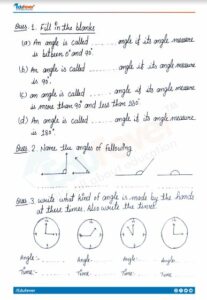 Eduhever
Ques. 1. Fill in the blanks
(a) An angle is called ........ angle if its angle measure
is between 0° and 90°.
(b) An angle is called ........ angle if its angle measure
is 90°.
(c) an angle is called ........ angle if its angle measure
is more than 90° and less than 180°
(d) An angle is called ........ angle if its angle measure
is 180°.
Ques. 2. Name the angles of following
Ques. 3 write what kind of angle is made by the hands
at these times. Also write the times.
Angle:- Angle. Angle. Angle.
Time:- Time Time: Time: